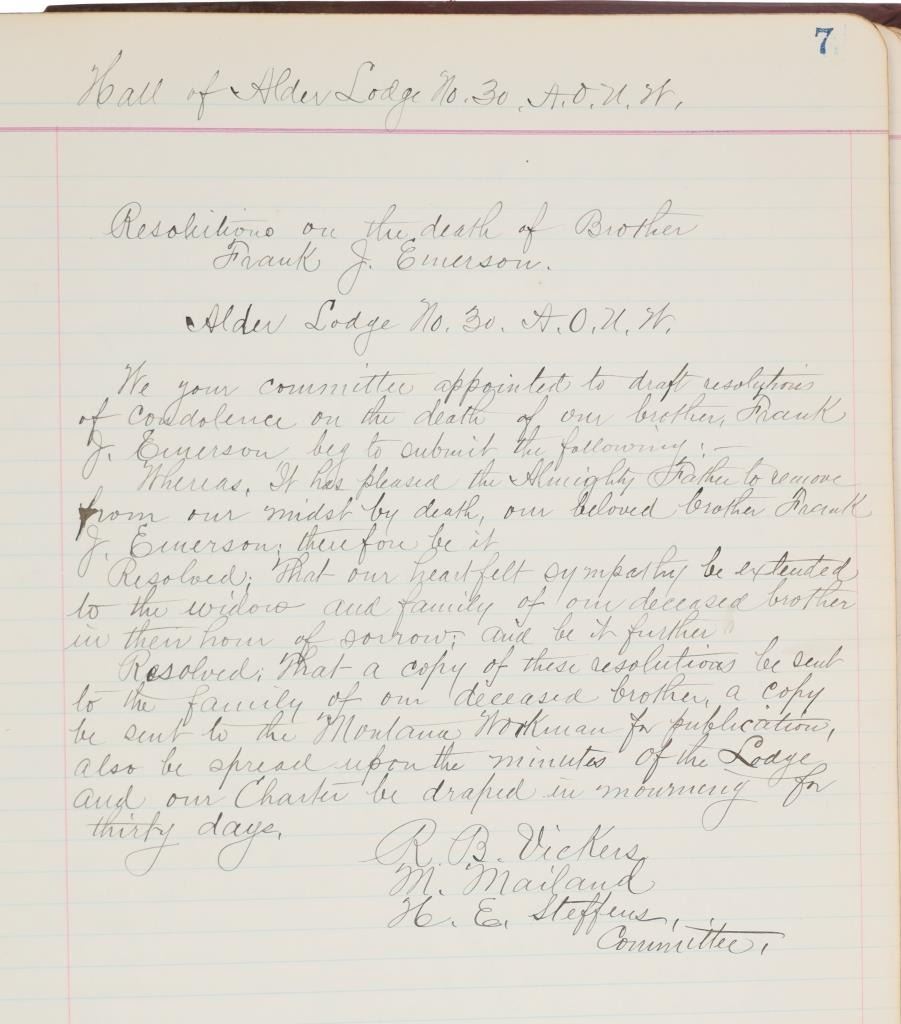 7
Hall of Alder Lodge No. 30. A. O. U. W.
Resolutions on the death of Brother
Frank J. Emerson.
Alder Lodge No. 30. A. O. U. W.
We your committee appointed to draft resolutions
of condolence on the death of our brother, Frank
J. Emerson beg to submit the following: —
Whereas, It has pleased the Almighty Father to remove
from our midst by death, our beloved brother Frank
J. Emerson; therefore be it
Resolved; That our heartfelt sympathy be extended
to the widow and family of our deceased brother
in their hour of sorrow; and be it further
Resolved; That a copy of these resolutions be sent
to the family of our deceased brother, a copy
be sent to the Montana Workman for publication,
also be spread upon the minutes of the Lodge
and our Charter be draped in mourning for
thirty days.
R. B. Vickers
M. Mailand
H. E. Steffens,
Committee.